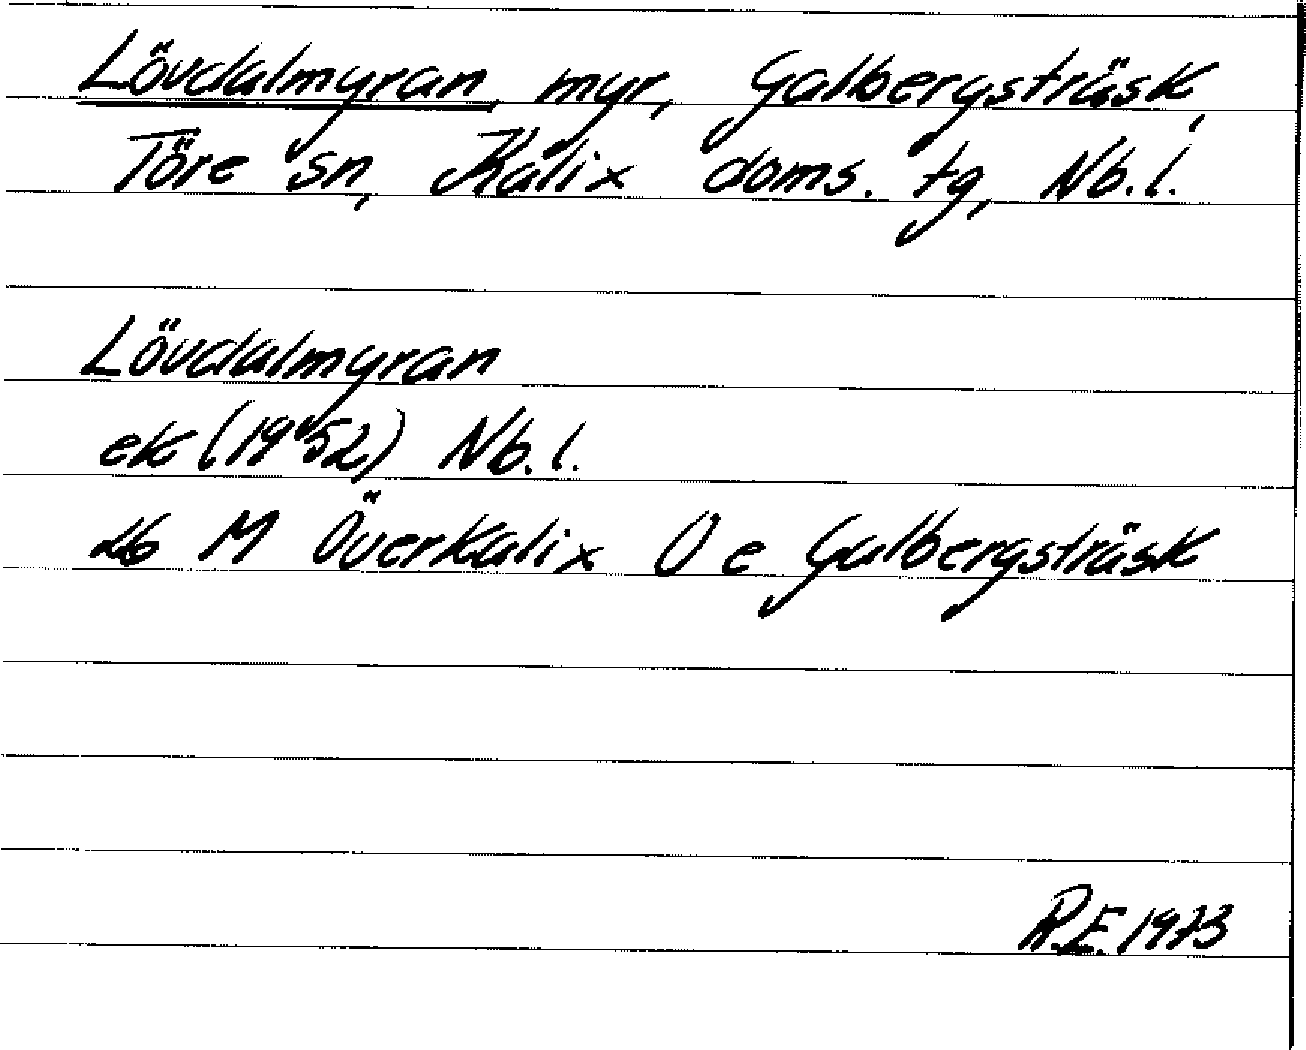 Lövdalmyran, myr, Galbergsträsk,
Töre sn, Kalix doms. tg, Nb.l.
Lövdalmyran
ek (1952) Nb.l.
26 M Överkalix O e Galbergsträsk
R.E. 1973